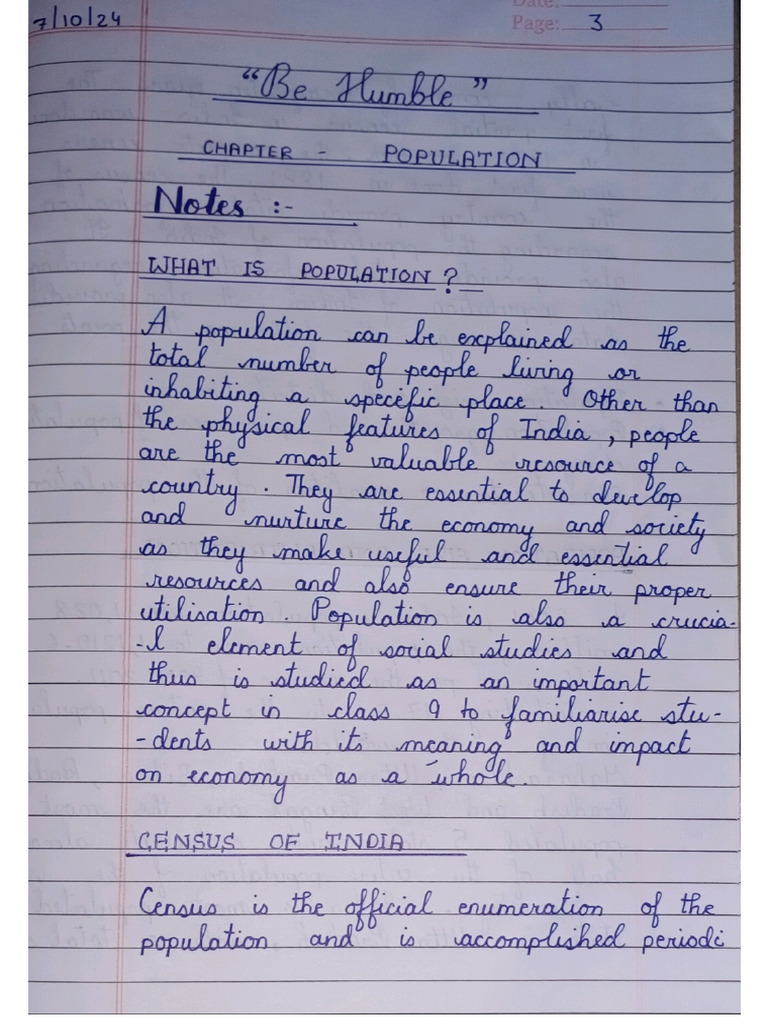 7/10/24
Date:
Page: 3
"Be Humble"
CHAPTER - POPULATION
Notes :-
WHAT IS POPULATION?
A population can be explained as the
total number of people living or
inhabiting a specific place. Other than
the physical features of India, people
are the most valuable resource of a
country. They are essential to develop
and nurture the economy and society
as they make useful and essential
resources and also ensure their proper
utilisation. Population is also a crucia-
-l element of social studies and
thus is studied as an important
concept in class 9 to familiarise stu-
-dents with its meaning and impact
on economy as a whole.
CENSUS OF INDIA
Census is the official enumeration of the
population and is accomplished periodi